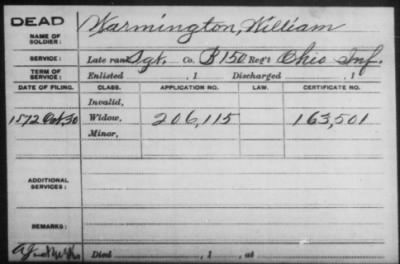 DEAD
NAME OF SOLDIER: Warmington, William
SERVICE: Late rank Sgt. Co. B 150 Reg't Ohio Inf.
TERM OF SERVICE: Enlisted , 1 Discharged , 1
DATE OF FILING. CLASS. APPLICATION NO. LAW. CERTIFICATE NO.
Invalid,
1572 Oct. 30 Widow, 206,115 163,501
Minor,
ADDITIONAL SERVICES:
REMARKS:
Died , 1 , at